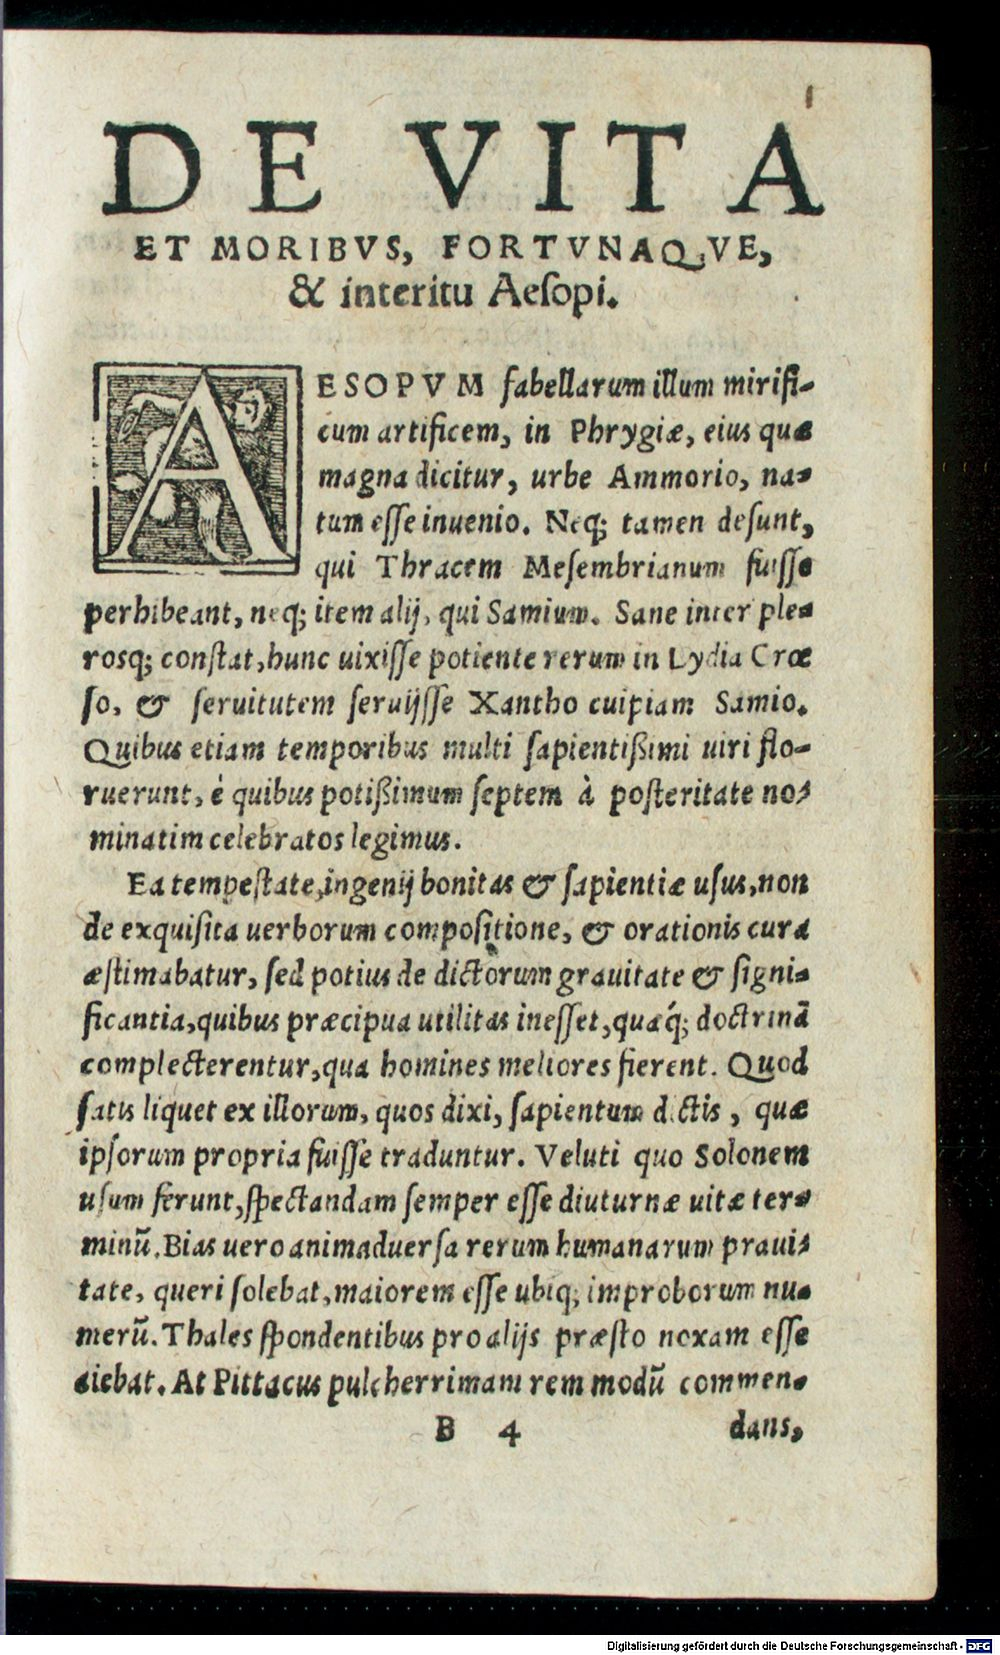 1
DE VITA
ET MORIBVS, FORTVNAQVE,
& interitu Aeſopi.
AESOPVM fabellarum illum mirifi-
cum artificem, in Phrygiæ, eius quæ
magna dicitur, urbe Ammorio, na-
tum eſſe inuenio. Neq; tamen deſunt,
qui Thracem Meſembrianum fuiſſe
perhibeant, neq; item alij, qui Samium. Sane inter ple-
rosq; conſtat, hunc uixiſſe potiente rerum in Lydia Crœ
ſo, & ſeruitutem ſeruijſſe Xantho cuipiam Samio.
Quibus etiam temporibus multi ſapientißimi uiri flo-
ruerunt, è quibus potißimum ſeptem à poſteritate no-
minatim celebratos legimus.
Ea tempeſtate, ingenij bonitas & ſapientiæ uſus, non
de exquiſita uerborum compoſitione, & orationis cura
æſtimabatur, ſed potius de dictorum grauitate & ſigni-
ficantia, quibus præcipua utilitas ineſſet, quæq́; doctrinā
complecterentur, qua homines meliores fierent. Quod
ſatis liquet ex illorum, quos dixi, ſapientum dictis, quæ
ipſorum propria fuiſſe traduntur. Veluti quo Solonem
uſum ferunt, ſpectandam ſemper eſſe diuturnæ uitæ ter-
minū. Bias uero animaduerſa rerum humanarum praui-
tate, queri ſolebat, maiorem eſſe ubiq; improborum nu-
merū. Thales ſpondentibus pro alijs præſto noxam eſſe
aiebat. At Pittacus pulcherrimam rem modū commen-
B 4 dans,
Digitalisierung gefördert durch die Deutsche Forschungsgemeinschaft - DFG